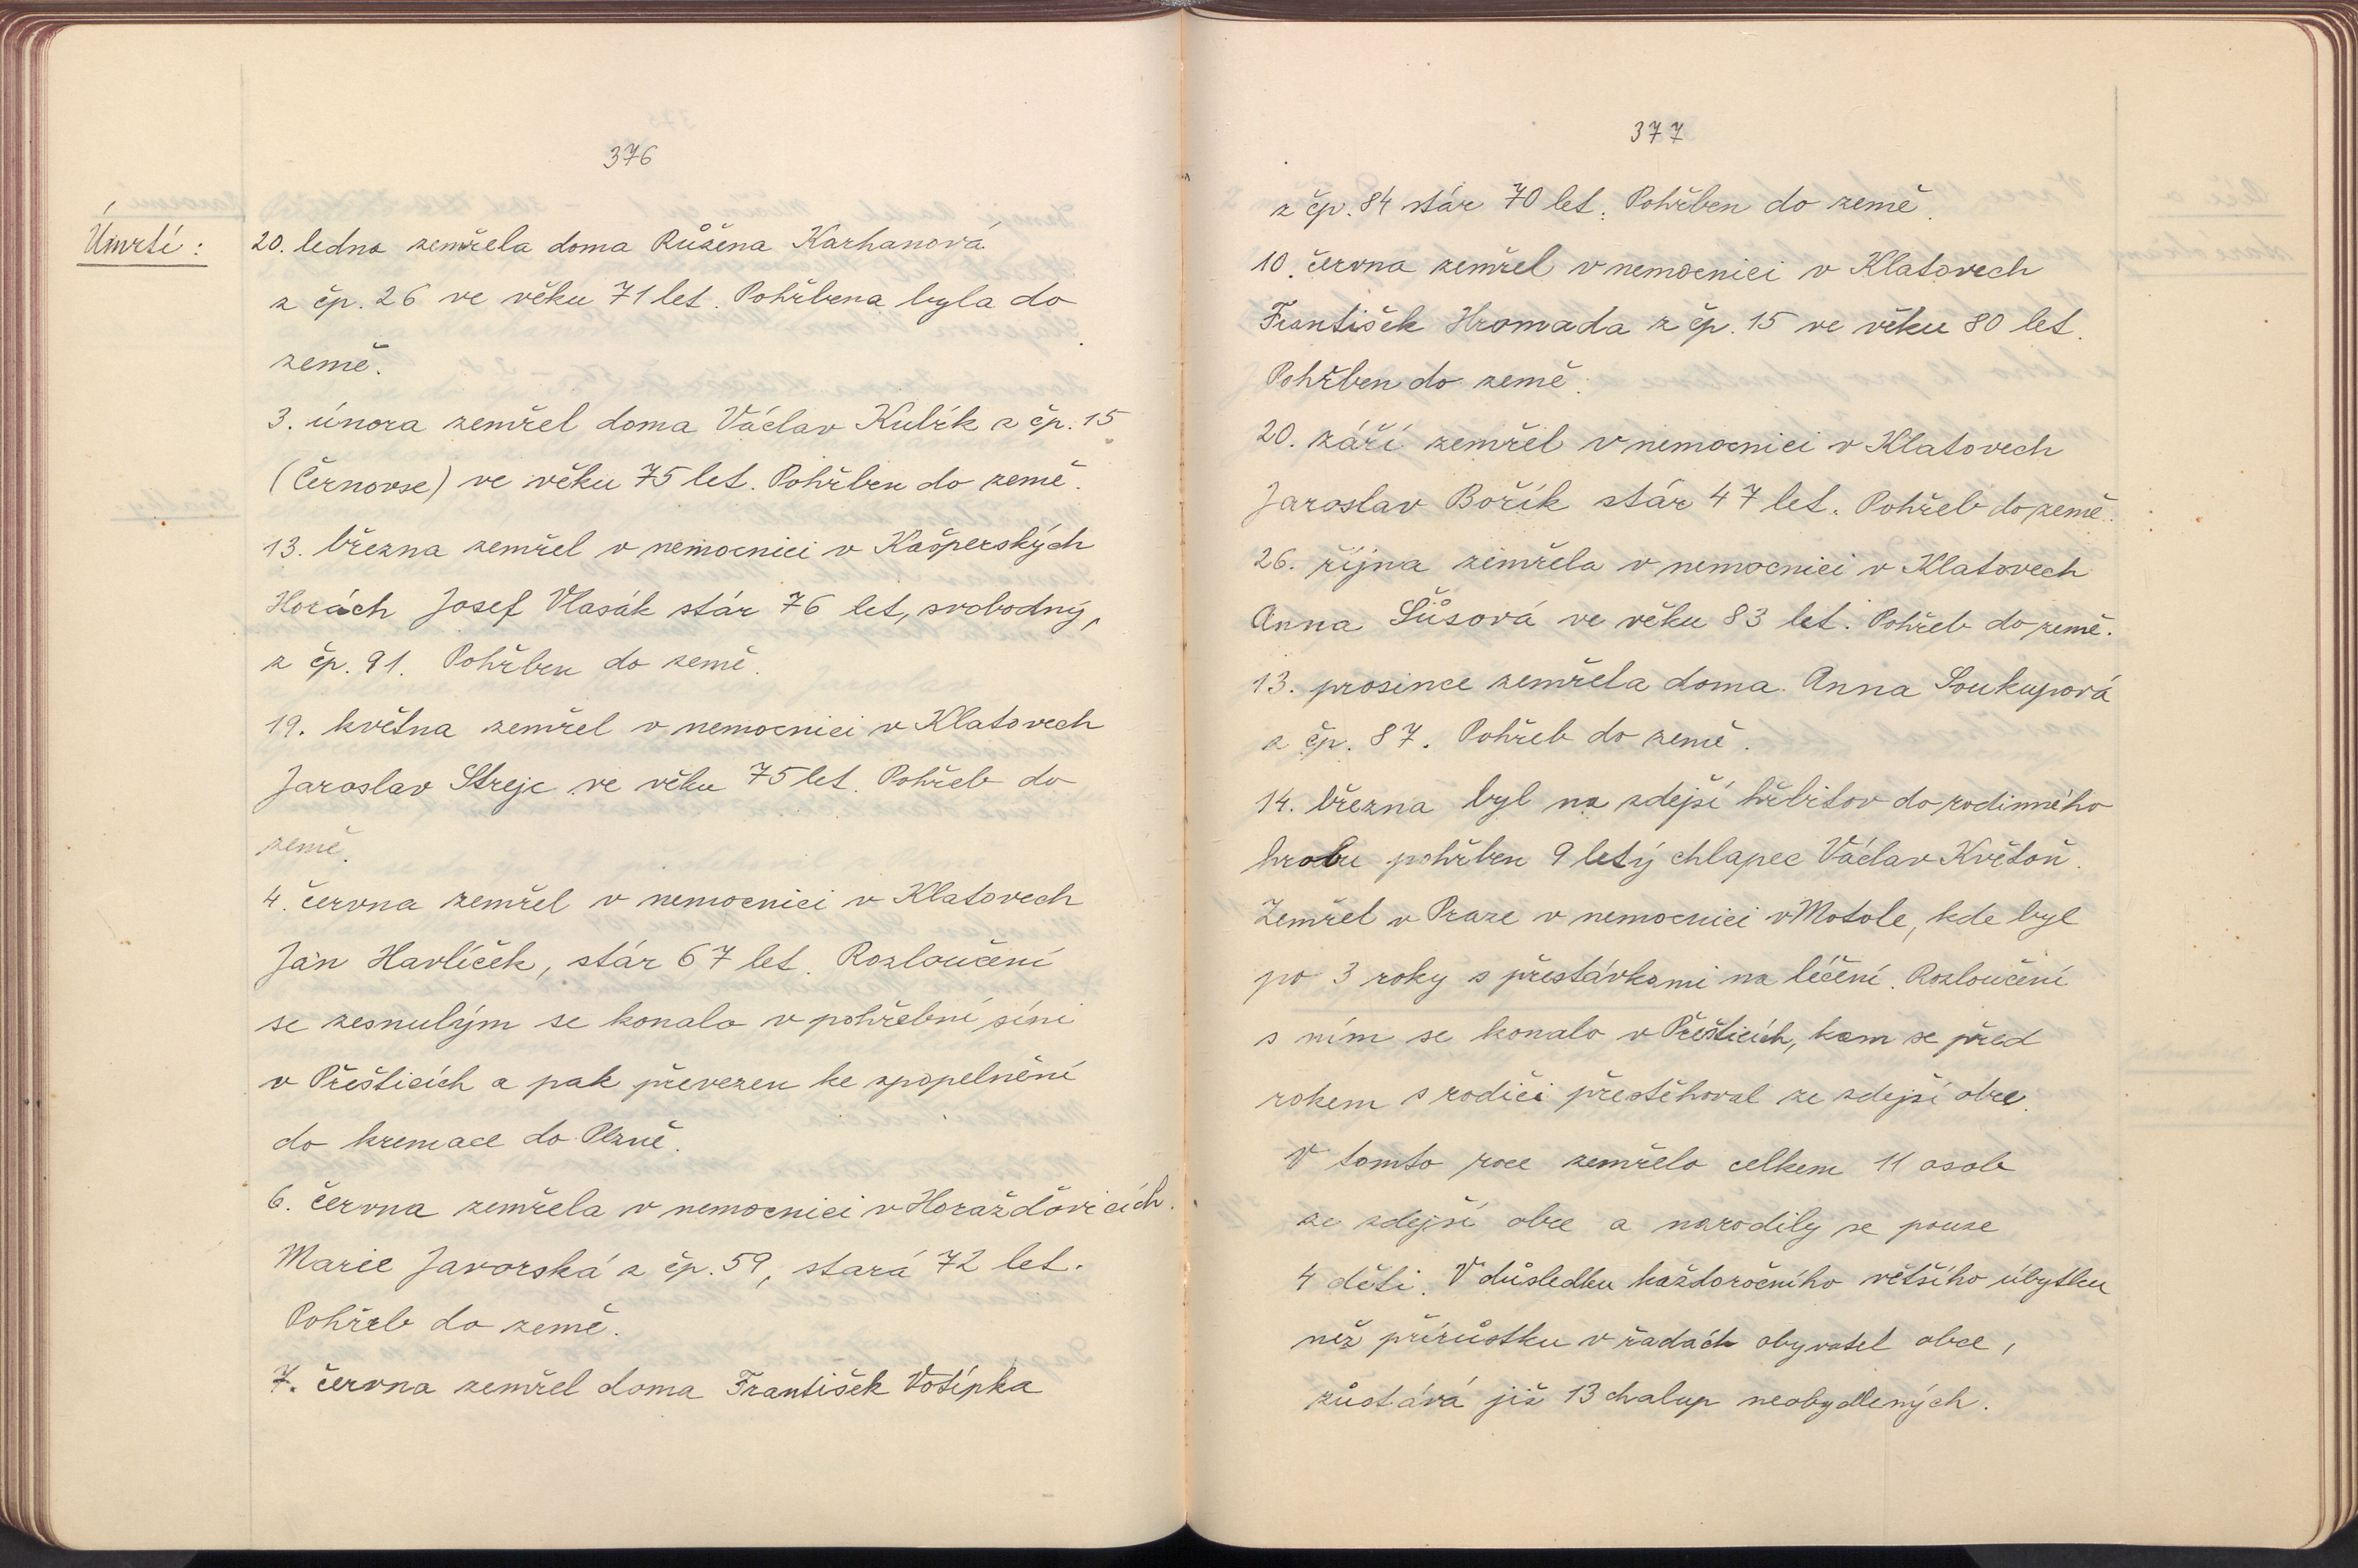 376
Úmrtí:
20. ledna zemřela doma Růžena Karhanová
z čp. 26 ve věku 71 let. Pohřbena byla do
země.
3. února zemřel doma Václav Kubík z čp. 15
(Černovse) ve věku 75 let. Pohřben do země.
13. března zemřel v nemocnici v Kašperských
Horách Josef Vlasák stár 76 let, svobodný,
z čp. 91. Pohřben do země.
19. května zemřel v nemocnici v Klatovech
Jaroslav Strejc ve věku 75 let. Pohřeb do
země.
4. června zemřel v nemocnici v Klatovech
Jan Havlíček, stár 67 let. Rozloučení
se zesnulým se konalo v pohřební síni
v Přešticích a pak převezen ke zpopelnění
do kremace do Plzně.
6. června zemřela v nemocnici v Horažďovicích.
Marie Javorská z čp. 59, stará 72 let.
Pohřeb do země.
7. června zemřel doma František Votípka
377
z čp. 84 stár 70 let. Pohřben do země.
10. června zemřel v nemocnici v Klatovech
František Hromada z čp. 15 ve věku 80 let.
Pohřben do země.
20. září zemřel v nemocnici v Klatovech
Jaroslav Bořík stár 47 let. Pohřeb do země.
26. října zemřela v nemocnici v Klatovech
Anna Šůsová ve věku 83 let. Pohřeb do země.
13. prosince zemřela doma Anna Soukupová
z čp. 87. Pohřeb do země.
14. března byl na zdejší hřbitov do rodinného
hrobu pohřben 9 letý chlapec Václav Květoň.
Zemřel v Praze v nemocnici v Motole, kde byl
po 3 roky s přestávkami na léčení. Rozloučení
s ním se konalo v Přešticích, kam se před
rokem s rodiči přestěhoval ze zdejší obce.
V tomto roce zemřelo celkem 11 osob
ze zdejší obce a narodily se pouze
4 děti. V důsledku každoročního většího úbytku
než přírůstku v řadách obyvatel obce,
zůstává již 13 chalup neobydlených.